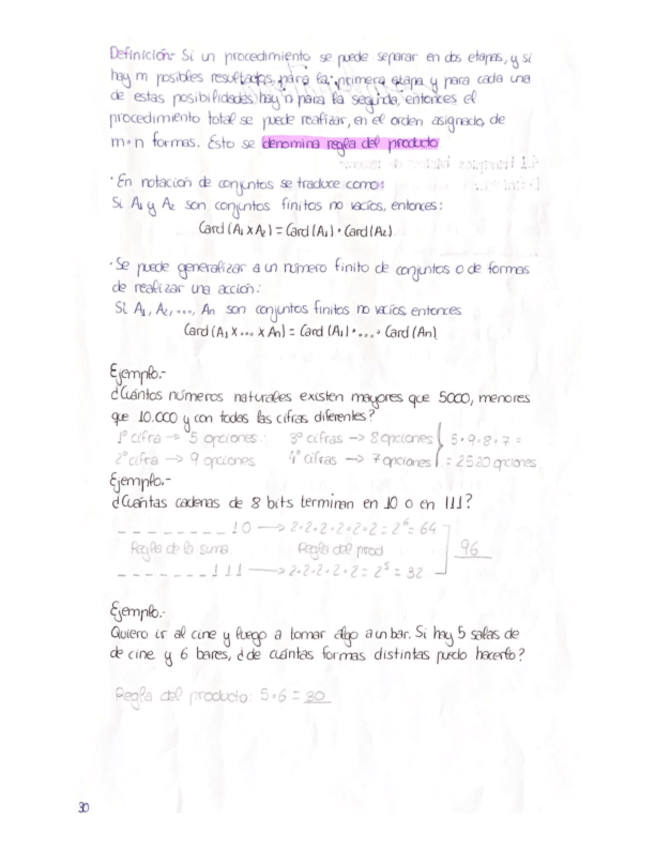 Definición.- Si un procedimiento se puede separar en dos etapas, y si
hay m posibles resultados para la primera etapa y para cada una
de estas posibilidades hay n para la segunda, entonces el
procedimiento total se puede realizar, en el orden asignado, de
m·n formas. Esto se denomina regla del producto
· En notación de conjuntos se traduce como:
Si A₁ y A₂ son conjuntos finitos no vacíos, entonces:
Card (A₁ x A₂) = Card (A₁) · Card (A₂)
· Se puede generalizar a un número finito de conjuntos o de formas
de realizar una acción:
Si A₁, A₂, ..., An son conjuntos finitos no vacíos entonces
Card (A₁ x ... x An) = Card (A₁) · ... · Card (An)
Ejemplo.-
¿Cuántos números naturales existen mayores que 5000, menores
que 10.000 y con todas las cifras diferentes?
1º cifra -> 5 opciones 3º cifras -> 8 opciones 5·9·8·7 =
2º cifra -> 9 opciones 4º cifras -> 7 opciones = 2520 opciones
Ejemplo.-
¿Cuántas cadenas de 8 bits terminan en 10 o en 111?
_ _ _ _ _ _ 10 -> 2·2·2·2·2·2 = 2⁶ = 64
Regla de la suma Regla del prod 96
_ _ _ _ _ 111 -> 2·2·2·2·2 = 2⁵ = 32
Ejemplo.-
Quiero ir al cine y luego a tomar algo a un bar. Si hay 5 salas de
de cine y 6 bares, ¿de cuántas formas distintas puedo hacerlo?
Regla del producto: 5·6 = 30
30